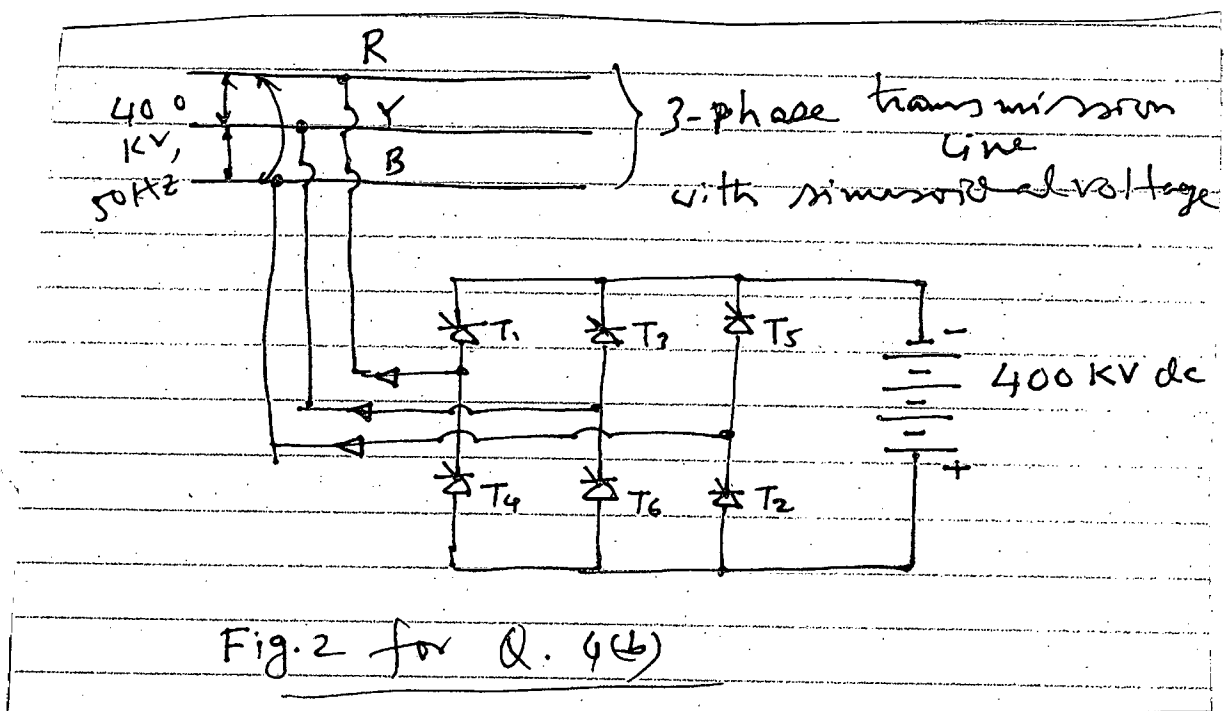 R
400 Y
KV, B
50HZ
3-phase transmission
Line
with sinusoidal voltage
T1 T3 T5
-
400 KV dc
+
T4 T6 T2
Fig. 2 for Q. 4(b)